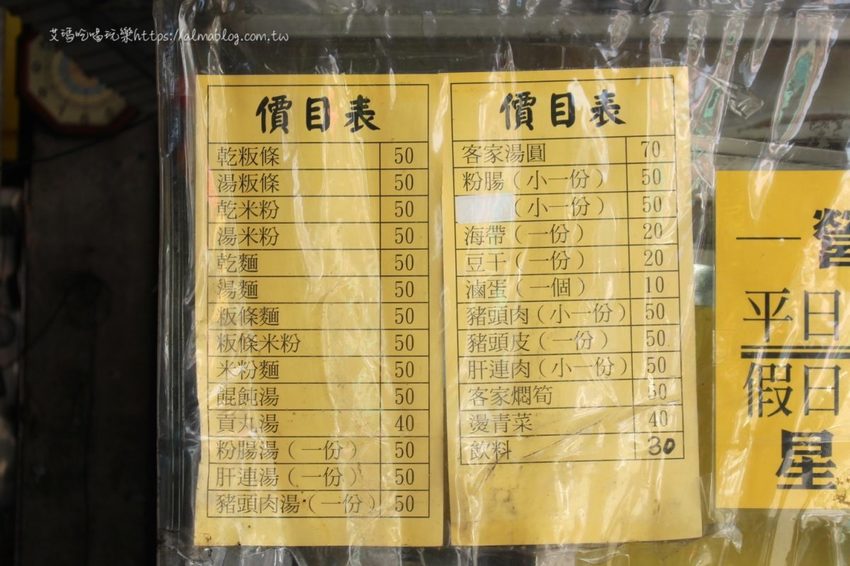 艾瑪吃喝玩樂https://almablog.com.tw
價目表
乾粄條 50
湯粄條 50
乾米粉 50
湯米粉 50
乾麵 50
湯麵 50
粄條麵 50
粄條米粉 50
米粉麵 50
餛飩湯 50
貢丸湯 40
粉腸湯（一份） 50
肝連湯（一份） 50
豬頭肉湯（一份） 50
價目表
客家湯圓 70
粉腸（小一份） 50
（小一份） 50
海帶（一份） 20
豆干（一份） 20
滷蛋（一個） 10
豬頭肉（小一份） 50
豬頭皮（一份） 50
肝連肉（小一份） 50
客家燜筍 50
燙青菜 40
飲料 30
一營
平日
假日
星